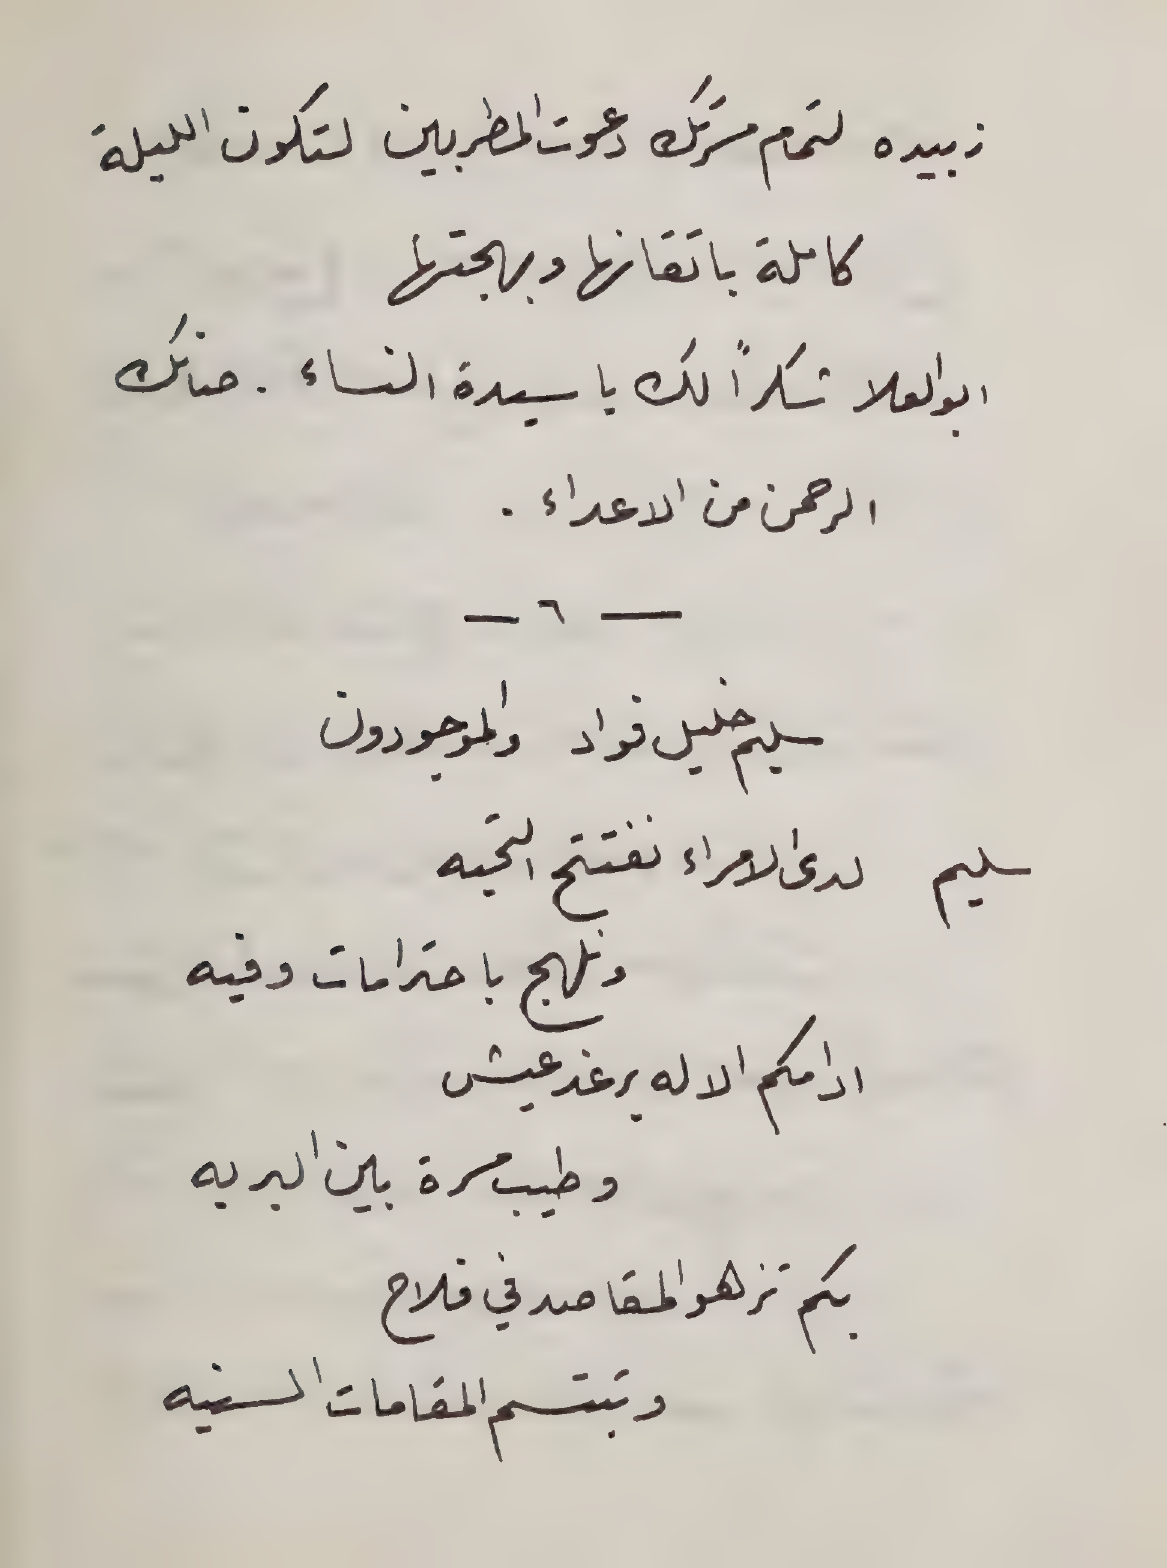 زبيده لتمام مسرتك دعوت المطربين لتكون الليلة
كاملة باتقانها وبهجتها
ابو العلا شكراً لك يا سيدة النساء . صانك
الرحمن من الاعداء .
— ٦ —
سليم خليل فواد والموجودون
سليم لدى الامراء نفتتح التحيه
ونلهج باحترامات وفيه
ادامكم الاله برغد عيش
وطيب مسرة بين البريه
بكم تزهو المقاصد في فلاح
وتبتسم المقامات السنيه